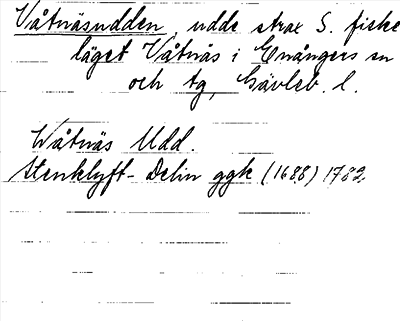 Våtnäsudden udde strax S. fiske
läget Våtnäs i Enångers sn
och tg, Gävleb. l.
Wåtnäs Udd.
Stenklyft-Delin ggk (1688) 1782